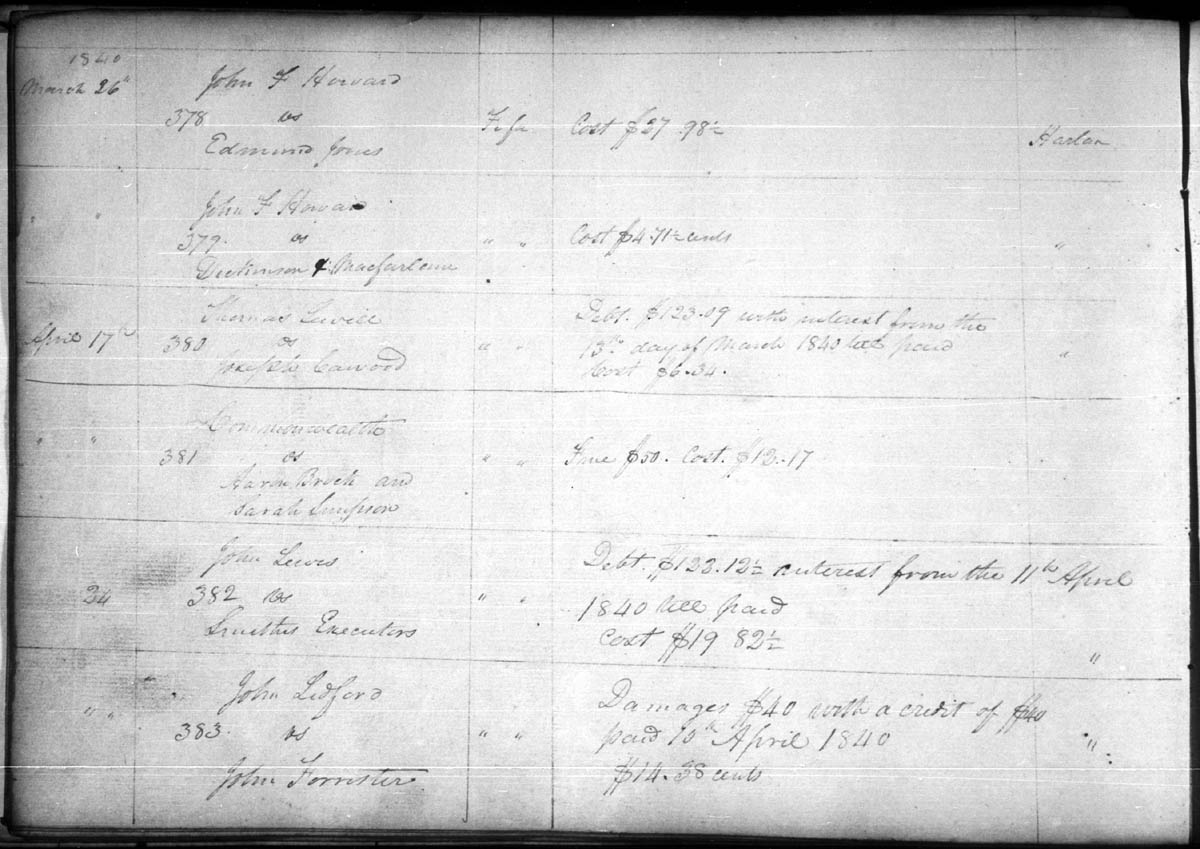 1840
March 26th
John F Howard
378 vs Fi fa Cost $27.98½
Edmund Jones Harlan
" " John F Howard
379. vs " " Cost $4.71½ cents "
Dickinson & Macfarlane
Thomas Lewill Debt. $123.09 with interest from the
April 17th 380 vs " " 13th day of March 1840 till paid "
Joseph Cawood Cost $6.34.
Commonwealth
" " 381 vs " " Fine $50. Cost. $12.17 "
Aaron Brock and
Sarah Simpson
John Lewis Debt. $122.12½ interest from the 11th April
24 382 vs " " 1840 till paid
Smiths Executors Cost $19 82½ "
John Ledford Damages $40 with a credit of $40
" " 383. vs " " paid 10th April 1840 "
John Forrester $14.38 cents